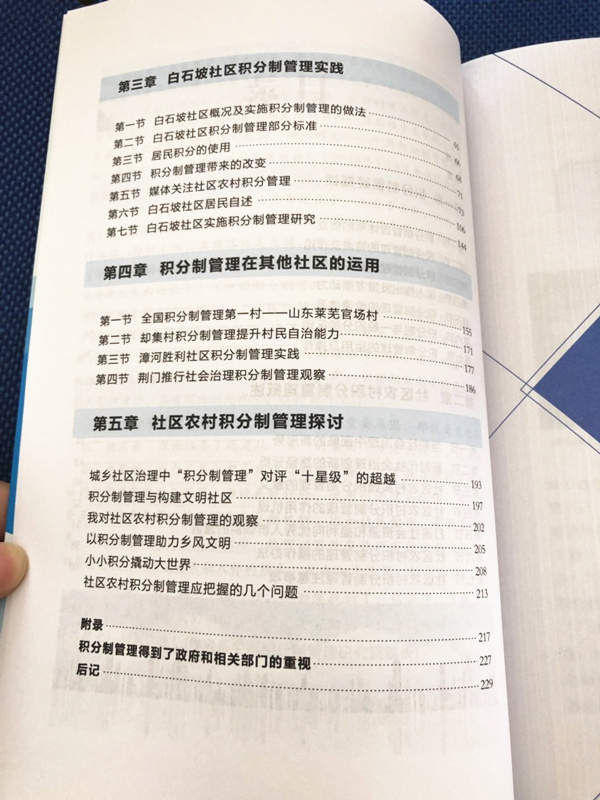 第三章 白石坡社区积分制管理实践
第一节 白石坡社区概况及实施积分制管理的做法 65
第二节 白石坡社区积分制管理部分标准 66
第三节 居民积分的使用 68
第四节 积分制管理带来的改变 71
第五节 媒体关注社区农村积分管理 73
第六节 白石坡社区居民自述 106
第七节 白石坡社区实施积分制管理研究 144
第四章 积分制管理在其他社区的运用
第一节 全国积分制管理第一村——山东莱芜官场村 155
第二节 却集村积分制管理提升村民自治能力 171
第三节 漳河胜利社区积分制管理实践 177
第四节 荆门推行社会治理积分制管理观察 186
第五章 社区农村积分制管理探讨
城乡社区治理中“积分制管理”对评“十星级”的超越 193
积分制管理与构建文明社区 197
我对社区农村积分制管理的观察 202
以积分制管理助力乡风文明 205
小小积分撬动大世界 208
社区农村积分制管理应把握的几个问题 213
附录 217
积分制管理得到了政府和相关部门的重视 227
后记 229